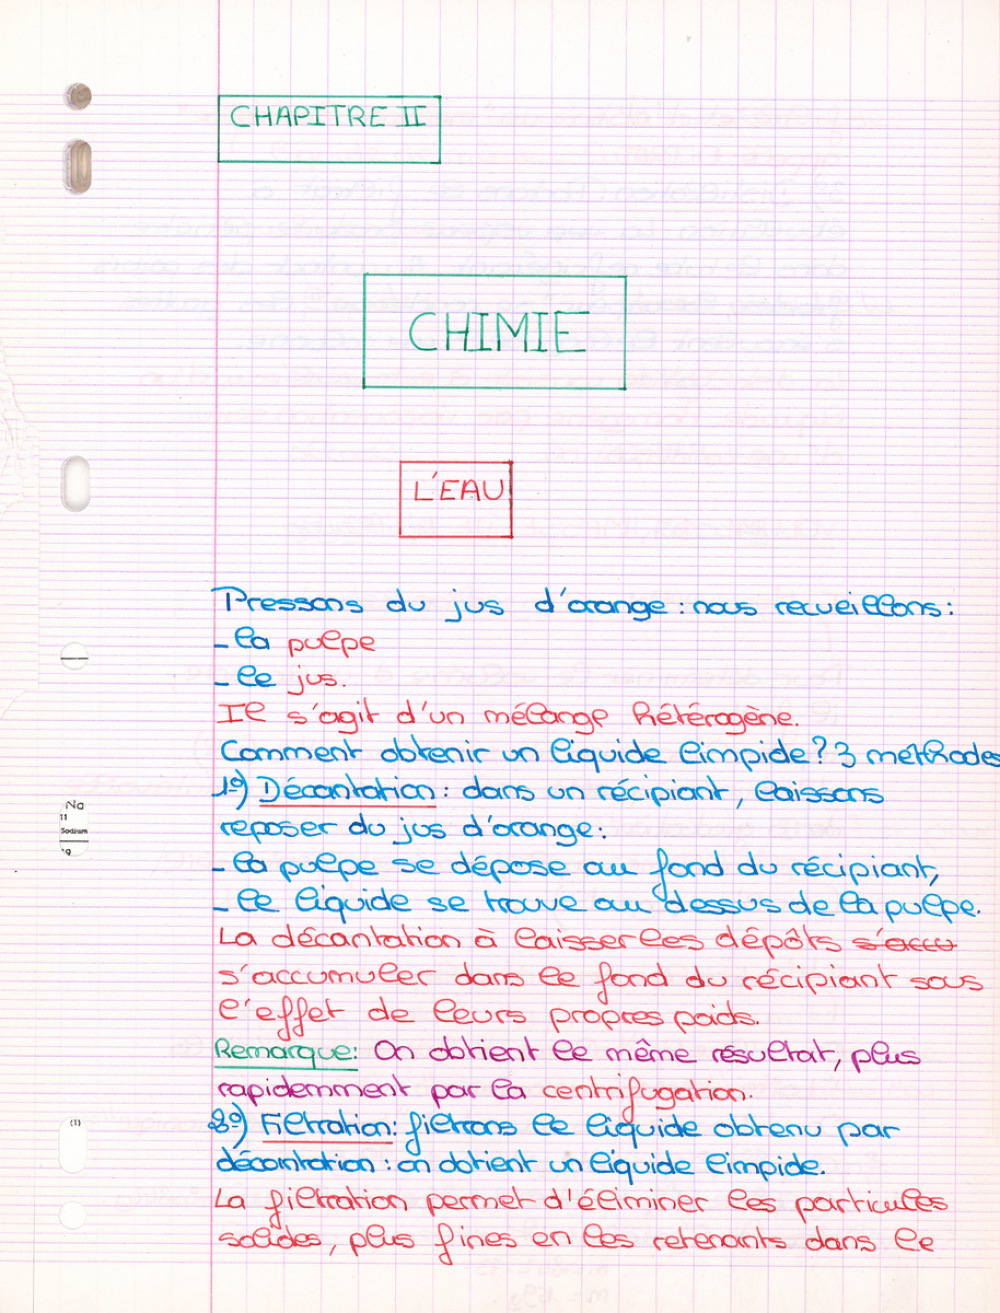 CHAPITRE II
CHIMIE
L'EAU
Pressons du jus d'orange : nous recueillons :
- la pulpe
- le jus.
Il s'agit d'un mélange hétérogène.
Comment obtenir un liquide limpide ? 3 méthodes
1°) Décantation : dans un récipiant, laissons
reposer du jus d'orange :
- la pulpe se dépose au fond du récipiant,
- le liquide se trouve au dessus de la pulpe.
La décantation à laisser les dépôts s'accu
s'accumuler dans le fond du récipiant sous
l'effet de leurs propres poids.
Remarque : On obtient le même résultat, plus
rapidemment par la centrifugation.
2°) Filtration : filtrons le liquide obtenu par
décantation : on obtient un liquide limpide.
La filtration permet d'éliminer les particules
solides, plus fines en les retenants dans le
Na
11
Sodium
(1)